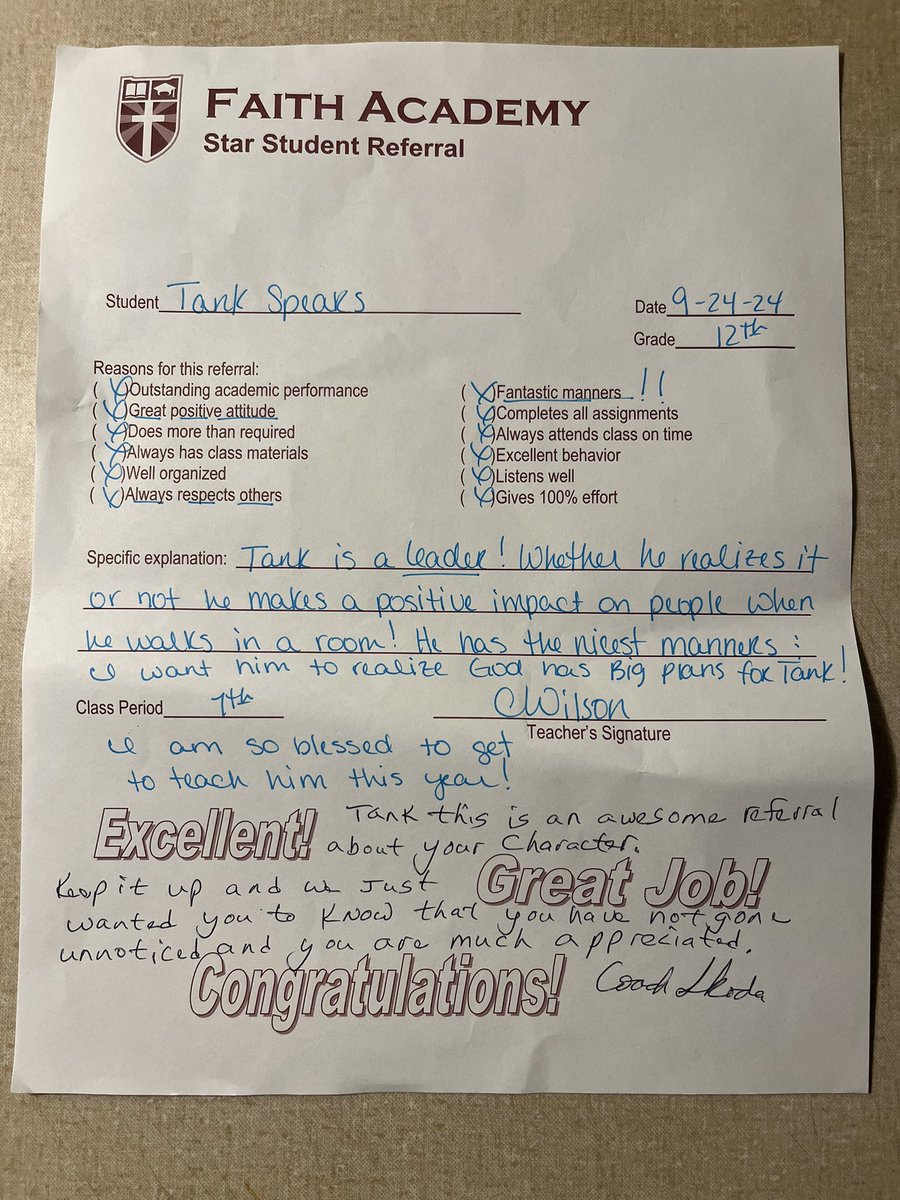 FAITH ACADEMY
Star Student Referral
Student Tank Spears
Date 9-24-24
Grade 12th
Reasons for this referral:
(X) Outstanding academic performance
(X) Great positive attitude
(X) Does more than required
(X) Always has class materials
(X) Well organized
(X) Always respects others
(X) Fantastic manners !!
(X) Completes all assignments
(X) Always attends class on time
(X) Excellent behavior
(X) Listens well
(X) Gives 100% effort
Specific explanation: Tank is a leader! Whether he realizes it
or not he makes a positive impact on people when
he walks in a room! He has the nicest manners :
I want him to realize God has Big plans for Tank!
Class Period 7th
CWilson
Teacher's Signature
I am so blessed to get
to teach him this year!
Excellent! Tank this is an awesome referral
about your Character.
Great Job!
Keep it up and we Just
wanted you to know that you have not gone
unnoticed and you are much appreciated.
Congratulations!
Coach Skoda